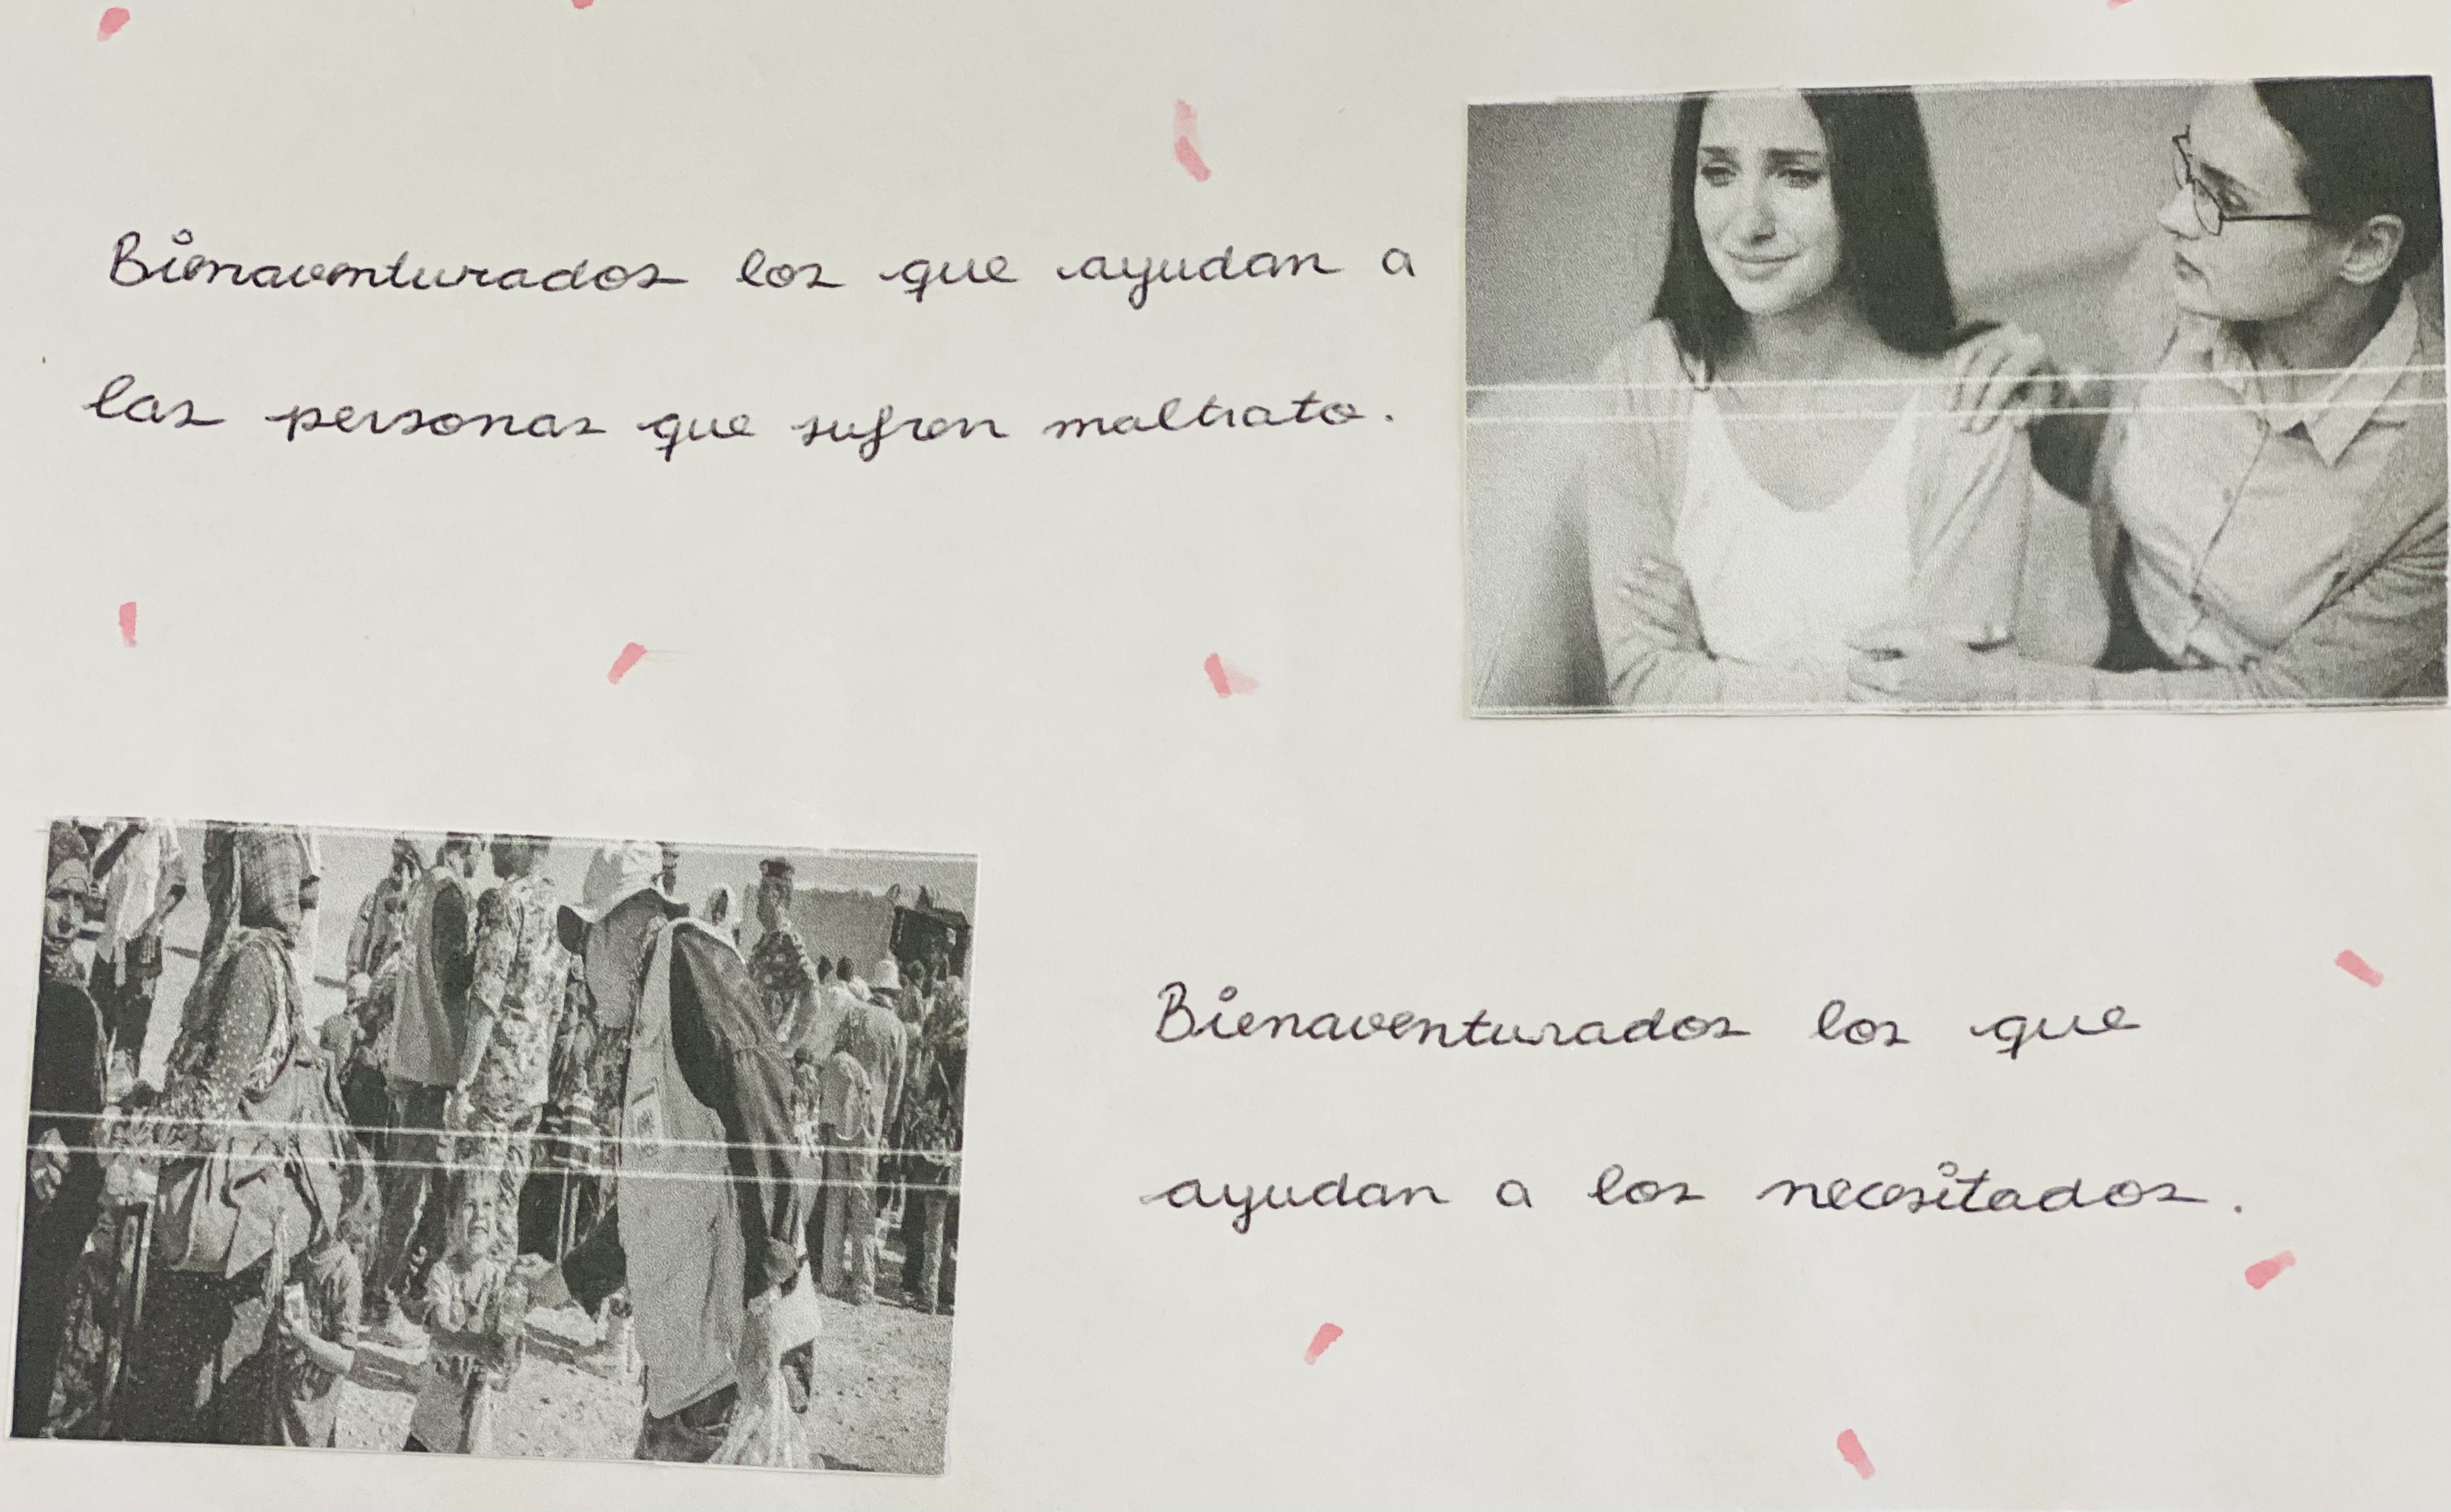 Bienaventurados los que ayudan a
las personas que sufren maltrato.
Bienaventurados los que
ayudan a los necesitados.